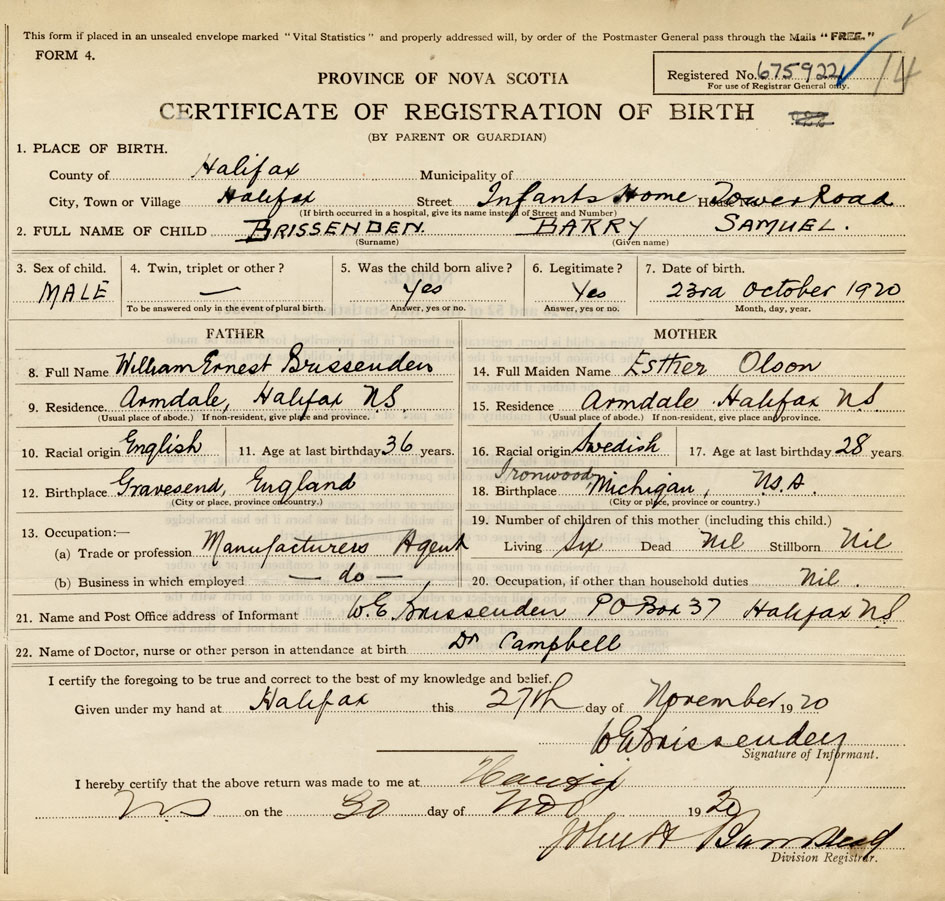 This form if placed in an unsealed envelope marked "Vital Statistics" and properly addressed will, by order of the Postmaster General pass through the Mails "FREE."
FORM 4.
Registered No. 675922 14
For use of Registrar General only.
PROVINCE OF NOVA SCOTIA
CERTIFICATE OF REGISTRATION OF BIRTH
(BY PARENT OR GUARDIAN)
1. PLACE OF BIRTH.
County of Halifax Municipality of
City, Town or Village Halifax Street Infants Home House No. Tower Road
(If birth occurred in a hospital, give its name instead of Street and Number)
2. FULL NAME OF CHILD BRISSENDEN. BARRY SAMUEL.
(Surname) (Given name)
3. Sex of child. 4. Twin, triplet or other? 5. Was the child born alive? 6. Legitimate? 7. Date of birth.
MALE — Yes Yes 23rd October 1920
To be answered only in the event of plural birth. Answer, yes or no. Answer, yes or no. Month, day, year.
FATHER
8. Full Name William Ernest Brissenden
9. Residence. Armdale, Halifax N.S.
(Usual place of abode.) If non-resident, give place and province.
10. Racial origin English 11. Age at last birthday 36 years
12. Birthplace Gravesend, England
(City or place, province or country.)
13. Occupation:—
(a) Trade or profession Manufacturers Agent
(b) Business in which employed — do —
MOTHER
14. Full Maiden Name Esther Olson
15. Residence Armdale Halifax N S
(Usual place of abode.) If non-resident, give place and province.
16. Racial origin Swedish 17. Age at last birthday 28 years
18. Birthplace Ironwood, Michigan, U.S.A.
(City or place, province or country.)
19. Number of children of this mother (including this child.)
Living Six Dead Nil Stillborn Nil
20. Occupation, if other than household duties Nil.
21. Name and Post Office address of Informant W.E. Brissenden P O Box 37 Halifax N S
22. Name of Doctor, nurse or other person in attendance at birth Dr Campbell
I certify the foregoing to be true and correct to the best of my knowledge and belief.
Given under my hand at Halifax this 27th day of November 1920
W E Brissenden
Signature of Informant.
I hereby certify that the above return was made to me at Halifax
N S on the 30 day of Nov 1920
John A Barnstead
Division Registrar.